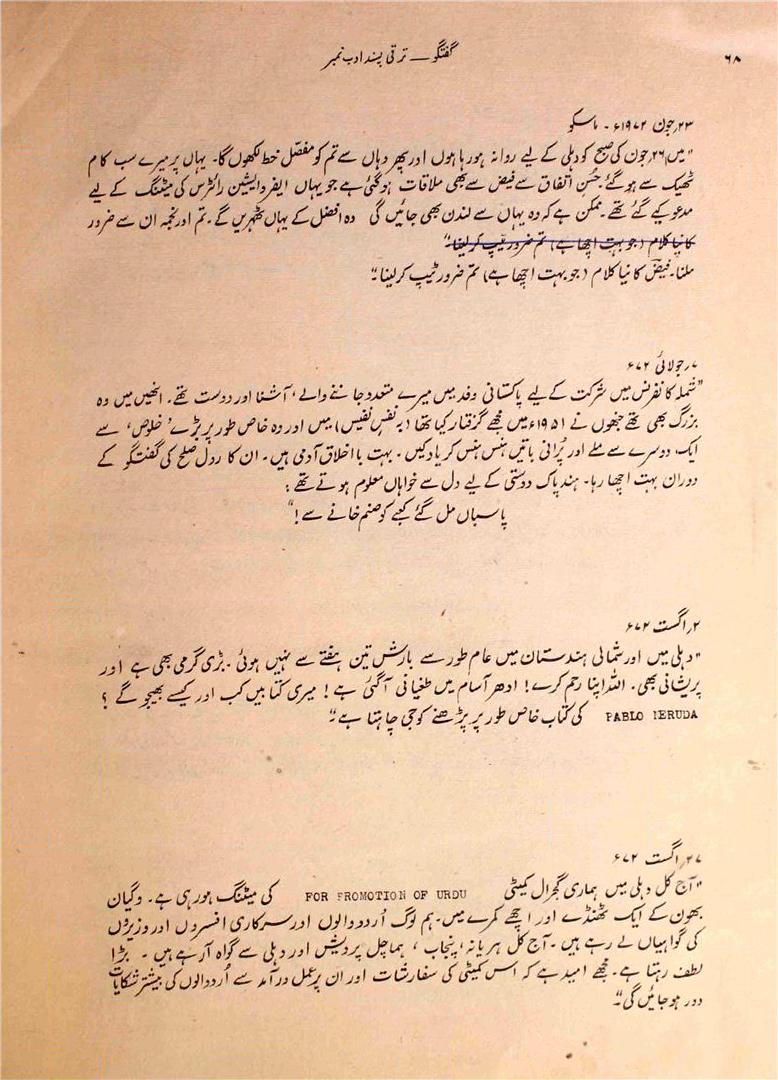 ۶۸
گفتگو — ترقی پسند ادب نمبر
۲۳؍جون ۱۹۷۲ء۔ ماسکو
"میں ۲۶؍جون کی صبح کو دہلی کے لیے روانہ ہو رہا ہوں اور پھر وہاں سے تم کو مفصّل خط لکھوں گا۔ یہاں پر میرے سب کام
ٹھیک سے ہو گئے۔ حُسنِ اتفاق سے فیض سے بھی ملاقات ہو گئی ہے جو یہاں ایفرو ایشین رائٹرس کی میٹنگ کے لیے
مدعو کیے گئے تھے۔ ممکن ہے کہ وہ یہاں سے لندن بھی جائیں گی وہ افضل کے یہاں ٹھہریں گے۔ تم اور نجمہ ان سے ضرور
کا نیا کلام (جو بہت اچھا ہے) تم ضرور ٹیپ کر لینا۔"
ملنا۔ فیضؔ کا نیا کلام (جو بہت اچھا ہے) تم ضرور ٹیپ کر لینا۔"
۷؍جولائی ۷۲ء
"شملہ کانفرنس میں شرکت کے لیے پاکستانی وفد میں میرے متعدد جاننے والے، آشنا اور دوست تھے۔ انھیں میں وہ
بزرگ بھی تھے جنھوں نے ۱۹۵۱ء میں مجھے گرفتار کیا تھا (بہ نفسِ نفیس) میں اور وہ خاص طور پر بڑے 'خلوص' سے
ایک دوسرے سے ملے اور پُرانی باتیں ہنس ہنس کر یاد کیں۔ بہت بااخلاق آدمی ہیں۔ ان کا ردل صلح کی گفتگو کے
دوران بہت اچھا رہا۔ ہند پاک دوستی کے لیے دل سے خواہاں معلوم ہوتے تھے:
پاسباں مل گئے کعبے کو صنم خانے سے!"
۲؍اگست ۷۲ء
"دہلی میں اور شمالی ہندستان میں عام طور سے بارش تین ہفتے سے نہیں ہوئی۔ بڑی گرمی بھی ہے اور
پریشانی بھی۔ اللہ اپنا رحم کرے! ادھر آسام میں طغیانی آگئی ہے! میری کتابیں کب اور کیسے بھیجو گے؟
PABLO NERUDA کی کتاب خاص طور پر پڑھنے کو جی چاہتا ہے۔"
۲۷؍اگست ۷۲ء
"آج کل دہلی میں ہماری گجرال کمیٹی FOR PROMOTION OF URDU کی میٹنگ ہو رہی ہے۔ وگیان
بھون کے ایک ٹھنڈے اور اچھے کمرے میں۔ ہم لوگ اُردو والوں اور سرکاری افسروں اور وزیروں
کی گواہیاں لے رہے ہیں۔ آج کل ہریانہ، پنجاب، ہماچل پردیش اور دہلی سے گواہ آرہے ہیں۔ بڑا
لطف رہتا ہے۔ مجھے امید ہے کہ اس کمیٹی کی سفارشات اور ان پر عمل درآمد سے اُردو والوں کی بیشتر شکایات
دور ہو جائیں گی۔"